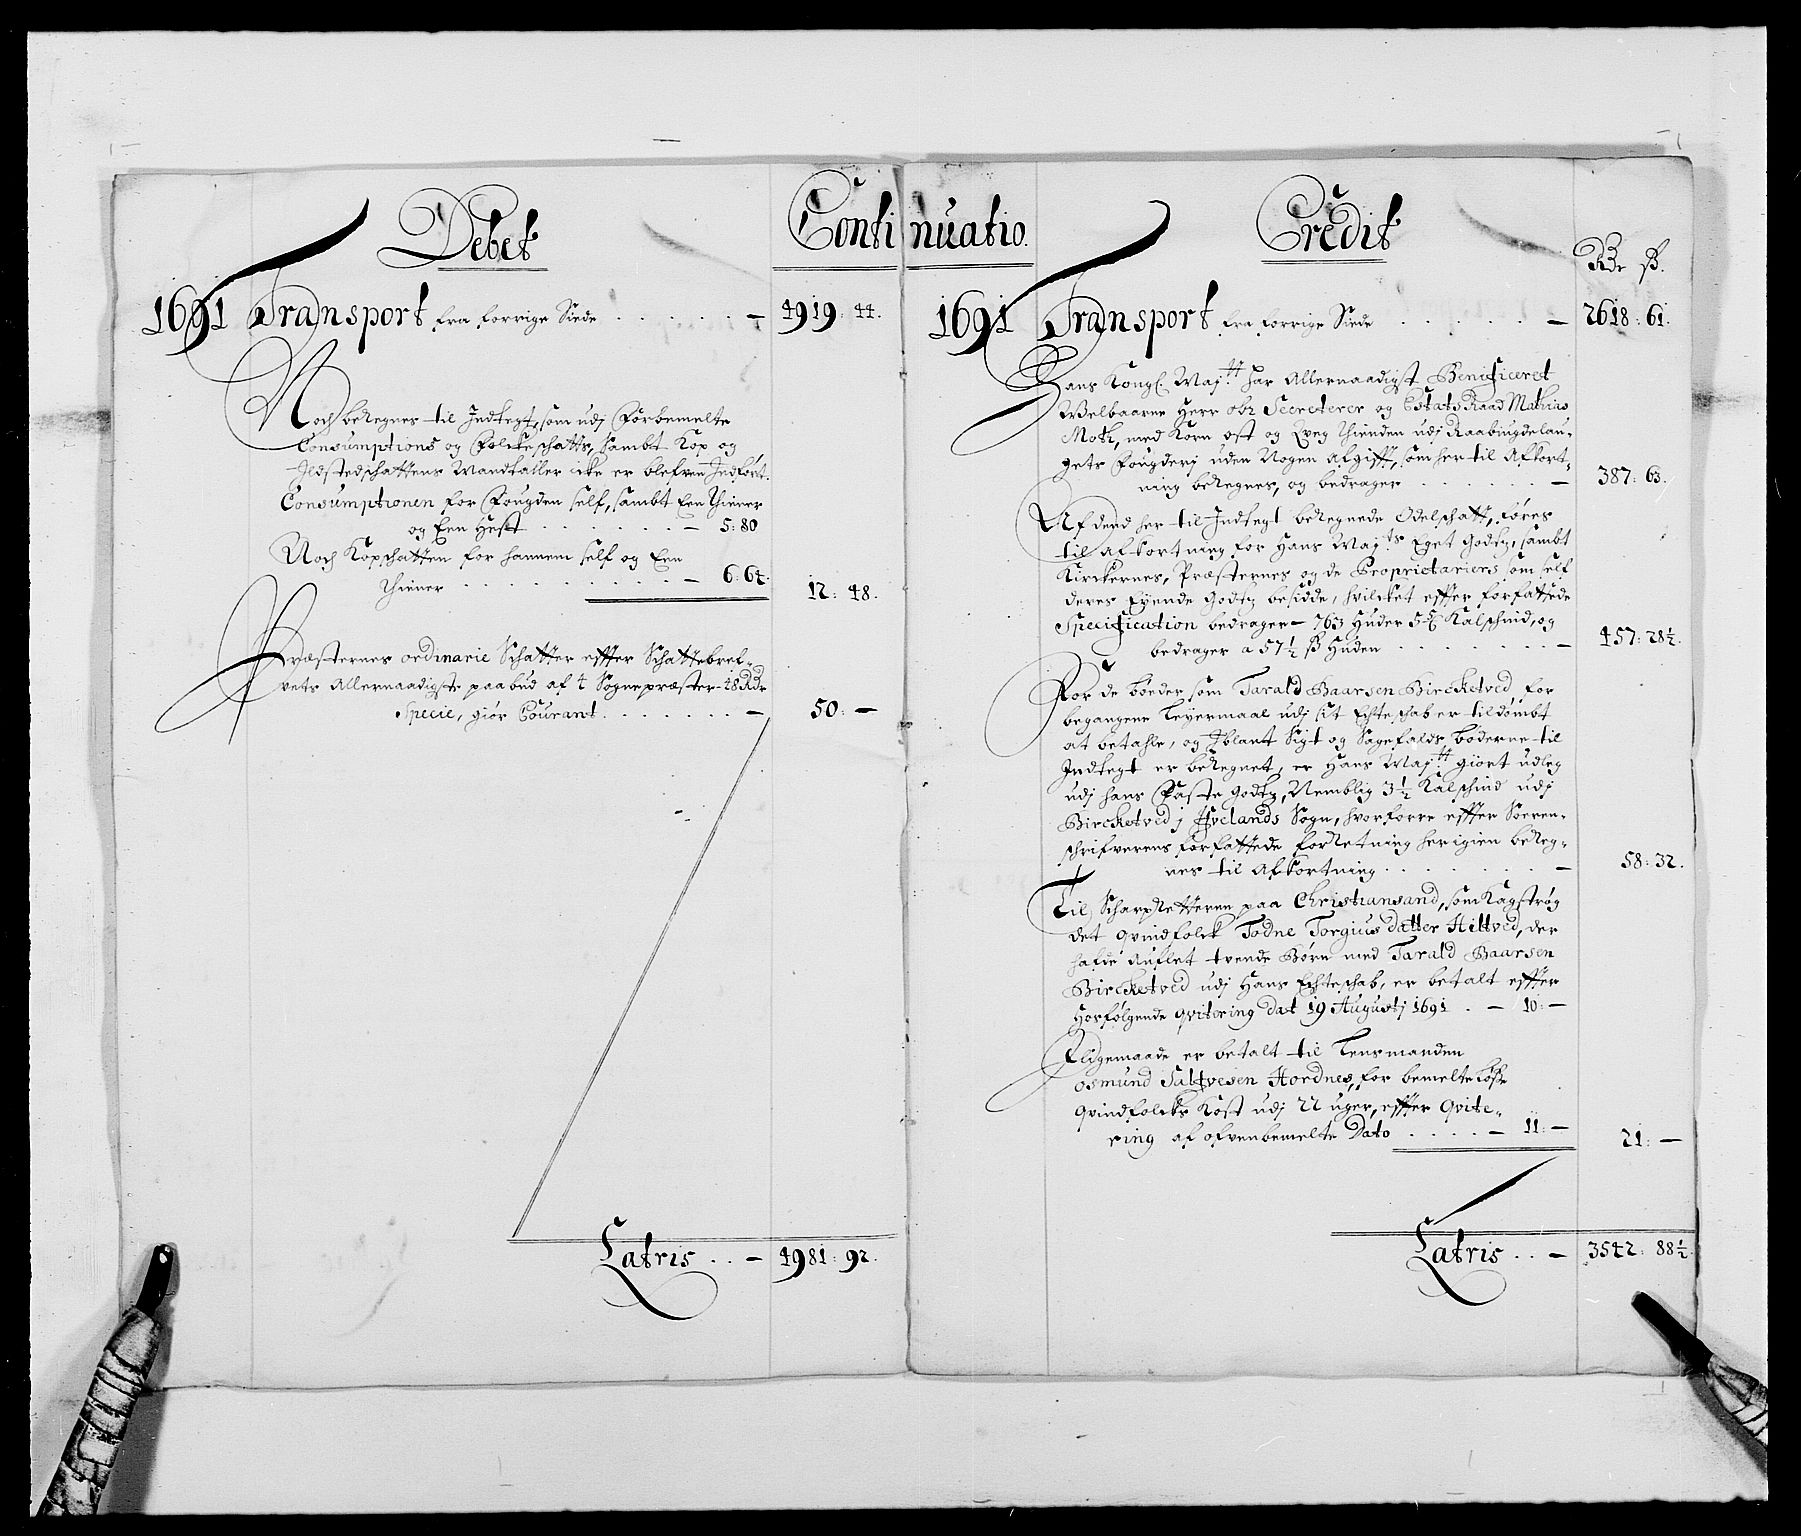 Debet
Continuatio.
1691 Transport fra forrige Siede . . . . . . — 4919: 44.
Noch beRegnes til Indtegt, som udj Forbemelte
Consumptions og Folckeschatts, sambt Kop og
Ildstedschattens Mandtaller icke er blefven Indført.
Consumptionen for Fougden self, sambt Een Thiener
og Een Hest . . . . . . . — 5: 80
Noch Kopschatten for hannem self og Een
Thiener . . . . . . . . . . — 6: 64.
12: 48.
Præsternes ordinarie Schatter effter Schattebref-
vets Allernaadigste paabud af 4 Sognepræster - 48 Rdr
Specie, giør Courant . . . . . . — 50: —
Latris . . — 4981: 92.
Credit
Rdr ß.
1691 Transport fra forrige Siede . . . . . — 2618: 61.
Hans Kongl. Maj.tt har Allernaadigst Benificeret
Welbaarne Herr obr Secreterer og Estats Raad Mathias
Moth, med Korn ost og Qveg Thienden udj Raabiugdelau-
gets Fougderj uden Nogen afgifft, som her til Afkort-
ning beRegnes, og bedrager . . . . . . — 387: 63.
Af dend her til Indtegt beRegnede Odelschatt, føres
til Afkortning for Hans Maj.ts Eget Godtz, sambt
Kirckernes, Præsternes og de Proprietariers som self
deres Eyende Godtz besidde, hvilcket effter forfattede
Specification bedrager — 763 Huder 5 5/6 Kalschind, og
bedrager a 57 1/2 ß Huden . . . . . . . — 457: 28 1/2.
For de bøeder som Tarald Baarsen Bircketved for
begangene Leyermaal udj sit Echteschab er tildømbt
at betahle, og Iblant Sigt og Sagefalds bøderne til
Indtegt er beRegnet, er Hans Maj.tt giort udleg
udj hans Faste Godtz, Nemblig 3 1/2 Kalschind udj
Bircketved j Hvelands Sogn, hvorforre effter Soeren-
schrifverens forfattede forRetning her igien beReg-
nes til Afkortning . . . . . . . — 58: 32.
Til ScharpRetteren paa Christiansand, som Kagstrøg
det qvindfolck Todne Torgius datter Hiltved, der
hafde Auflet tvende Børn med Tarald Baarsen
Bircketved udj Hans Echteschab, er betalt effter
Hosfølgende qvitering dat 19 Augustj 1691 . — 10: —
Iligemaade er betalt til Lensmanden
osmund Saltvesen Hordnes, for bemelte løsse
qvindfolcks Kost udj 22 uger, effter qvite-
ring af ofvenbemelte Dato . . . . — 11: —
21: —
Latris . . — 3542: 88 1/2.